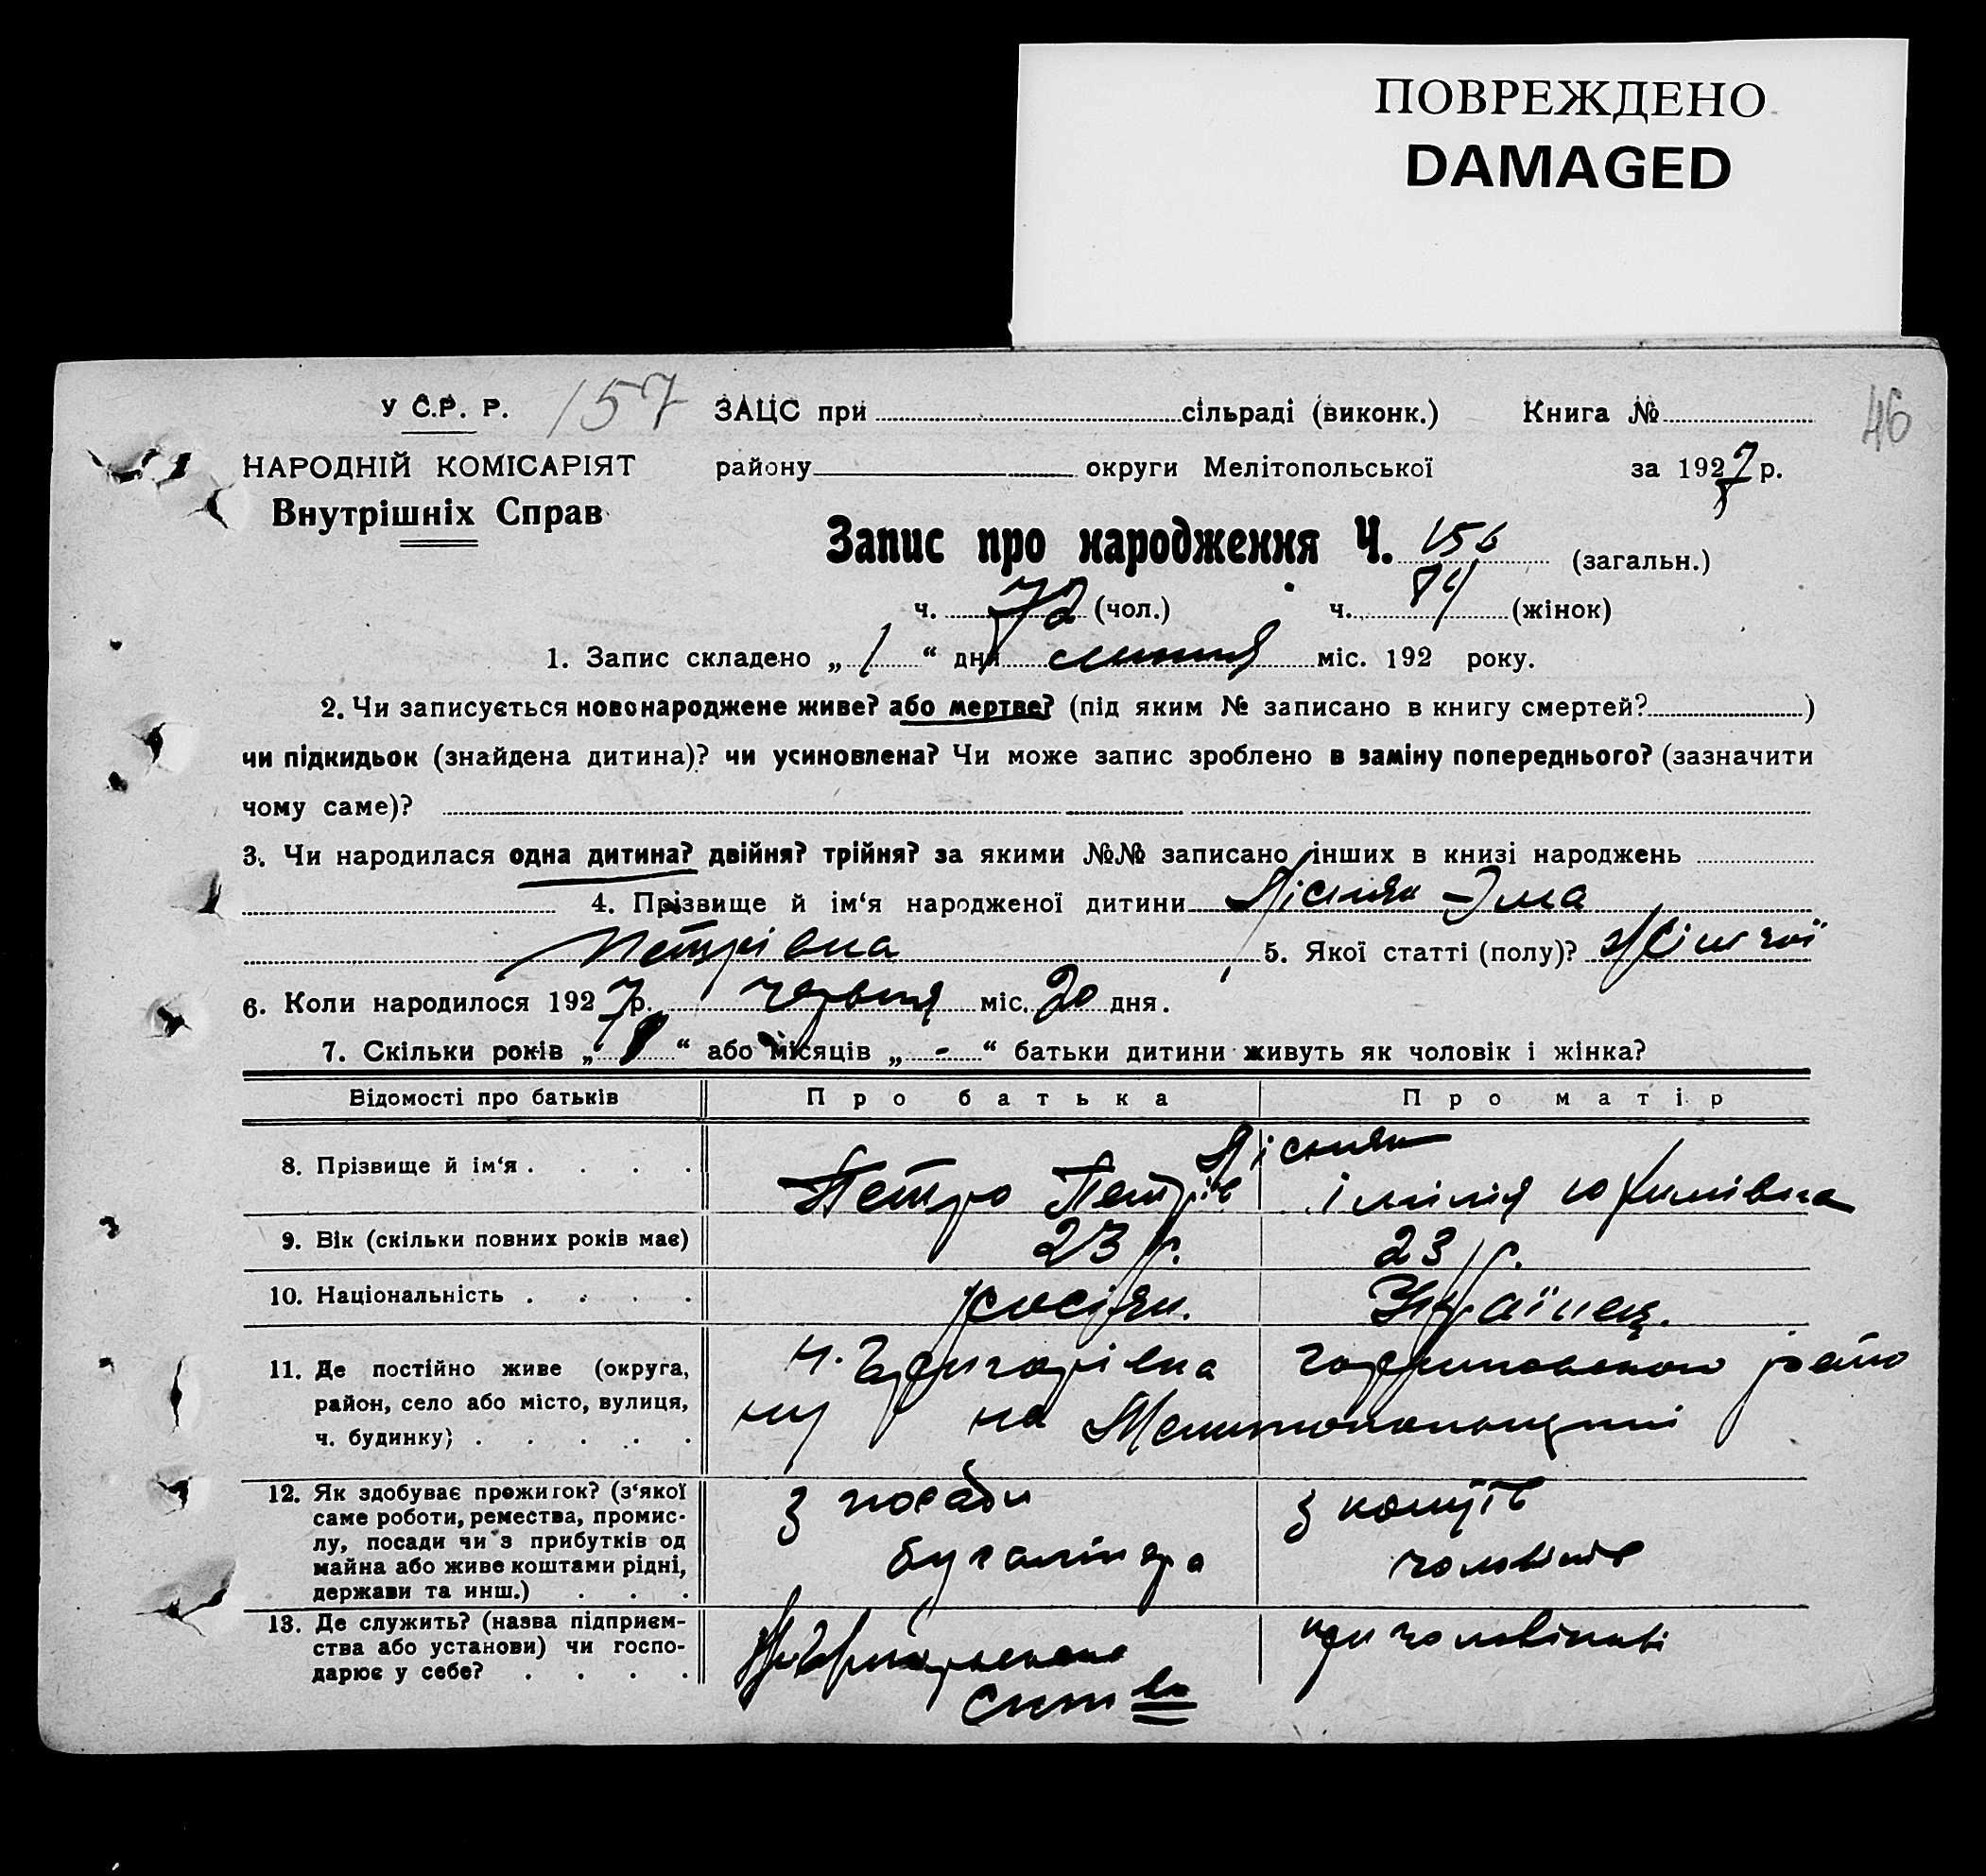 ПОВРЕЖДЕНО
DAMAGED
У С.Р. Р. 157 ЗАЦС при сільраді (виконк.) Книга № 46
НАРОДНІЙ КОМІСАРІЯТ району округи Мелітопольської за 1927 р.
Внутрішніх Справ
Запис про народження Ч. 156 (загальн.)
ч. 72 (чол.) ч. 84 (жінок)
1. Запис складено „ 1 “ дня липня міс. 192 року.
2. Чи записується новонароджене живе? або мертве? (під яким № записано в книгу смертей? )
чи підкидьок (знайдена дитина)? чи усиновлена? Чи може запис зроблено в заміну попереднього? (зазначити
чому саме)?
3. Чи народилася одна дитина? двійня? трійня? за якими №№ записано інших в книзі народжень
4. Прізвище й ім‘я народженої дитини Лісняк Эма
Петрівна 5. Якої статті (полу)? жіночої
6. Коли народилося 1927 р. червня міс. 20 дня.
7. Скільки років „ “ або місяців „ - “ батьки дитини живуть як чоловік і жінка?
Відомості про батьків Про батька Про матір
Лісняк
8. Прізвище й ім‘я . . . . Петро Петрів Юхимівна
9. Вік (скільки повних років має) 23 р. 23 р.
10. Національність . . . . росіян. Українец.
11. Де постійно живе (округа, райо
район, село або місто, вулиця, ну на Мелитопольщині
ч. будинку) . . . . .
12. Як здобуває прожиток? (з‘якої з посади з коштів
саме роботи, ремества, промис-
лу, посади чи з прибутків од бухгалтера чоловіка
майна або живе коштами рідні,
держави та инш.) . . .
13. Де служить? (назва підприєм- при чоловікові
ства або установи) чи госпо-
дарює у себе? . . . .